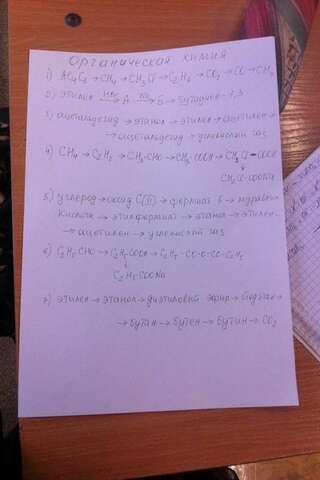 Органическая химия
1) Al4C3 → CH4 → CH3Cl → C2H6 → CO2 → CO → CH4
2) этилен HBr → A Na → Б → бутадиен-1,3
3) ацетальдегид → этанол → этилен → ацетилен →
→ ацетальдегид → углекислый газ
4) CH4 → C2H2 → CH3CHO → CH3COOH → CH2Cl-COOH
↓
CH2Cl-COONa
5) углерод → оксид C(II) → формиат → муравьин.
кислота → этилформиат → этанол → этилен →
→ ацетилен → углекислый газ
6) C2H5CHO → C2H5COOH → C2H5-CO-O-CO-C2H5
↓
C2H5COONa
7) этилен → этанол → диэтиловый эфир →
→ бутан → бутен → бутин → CO2